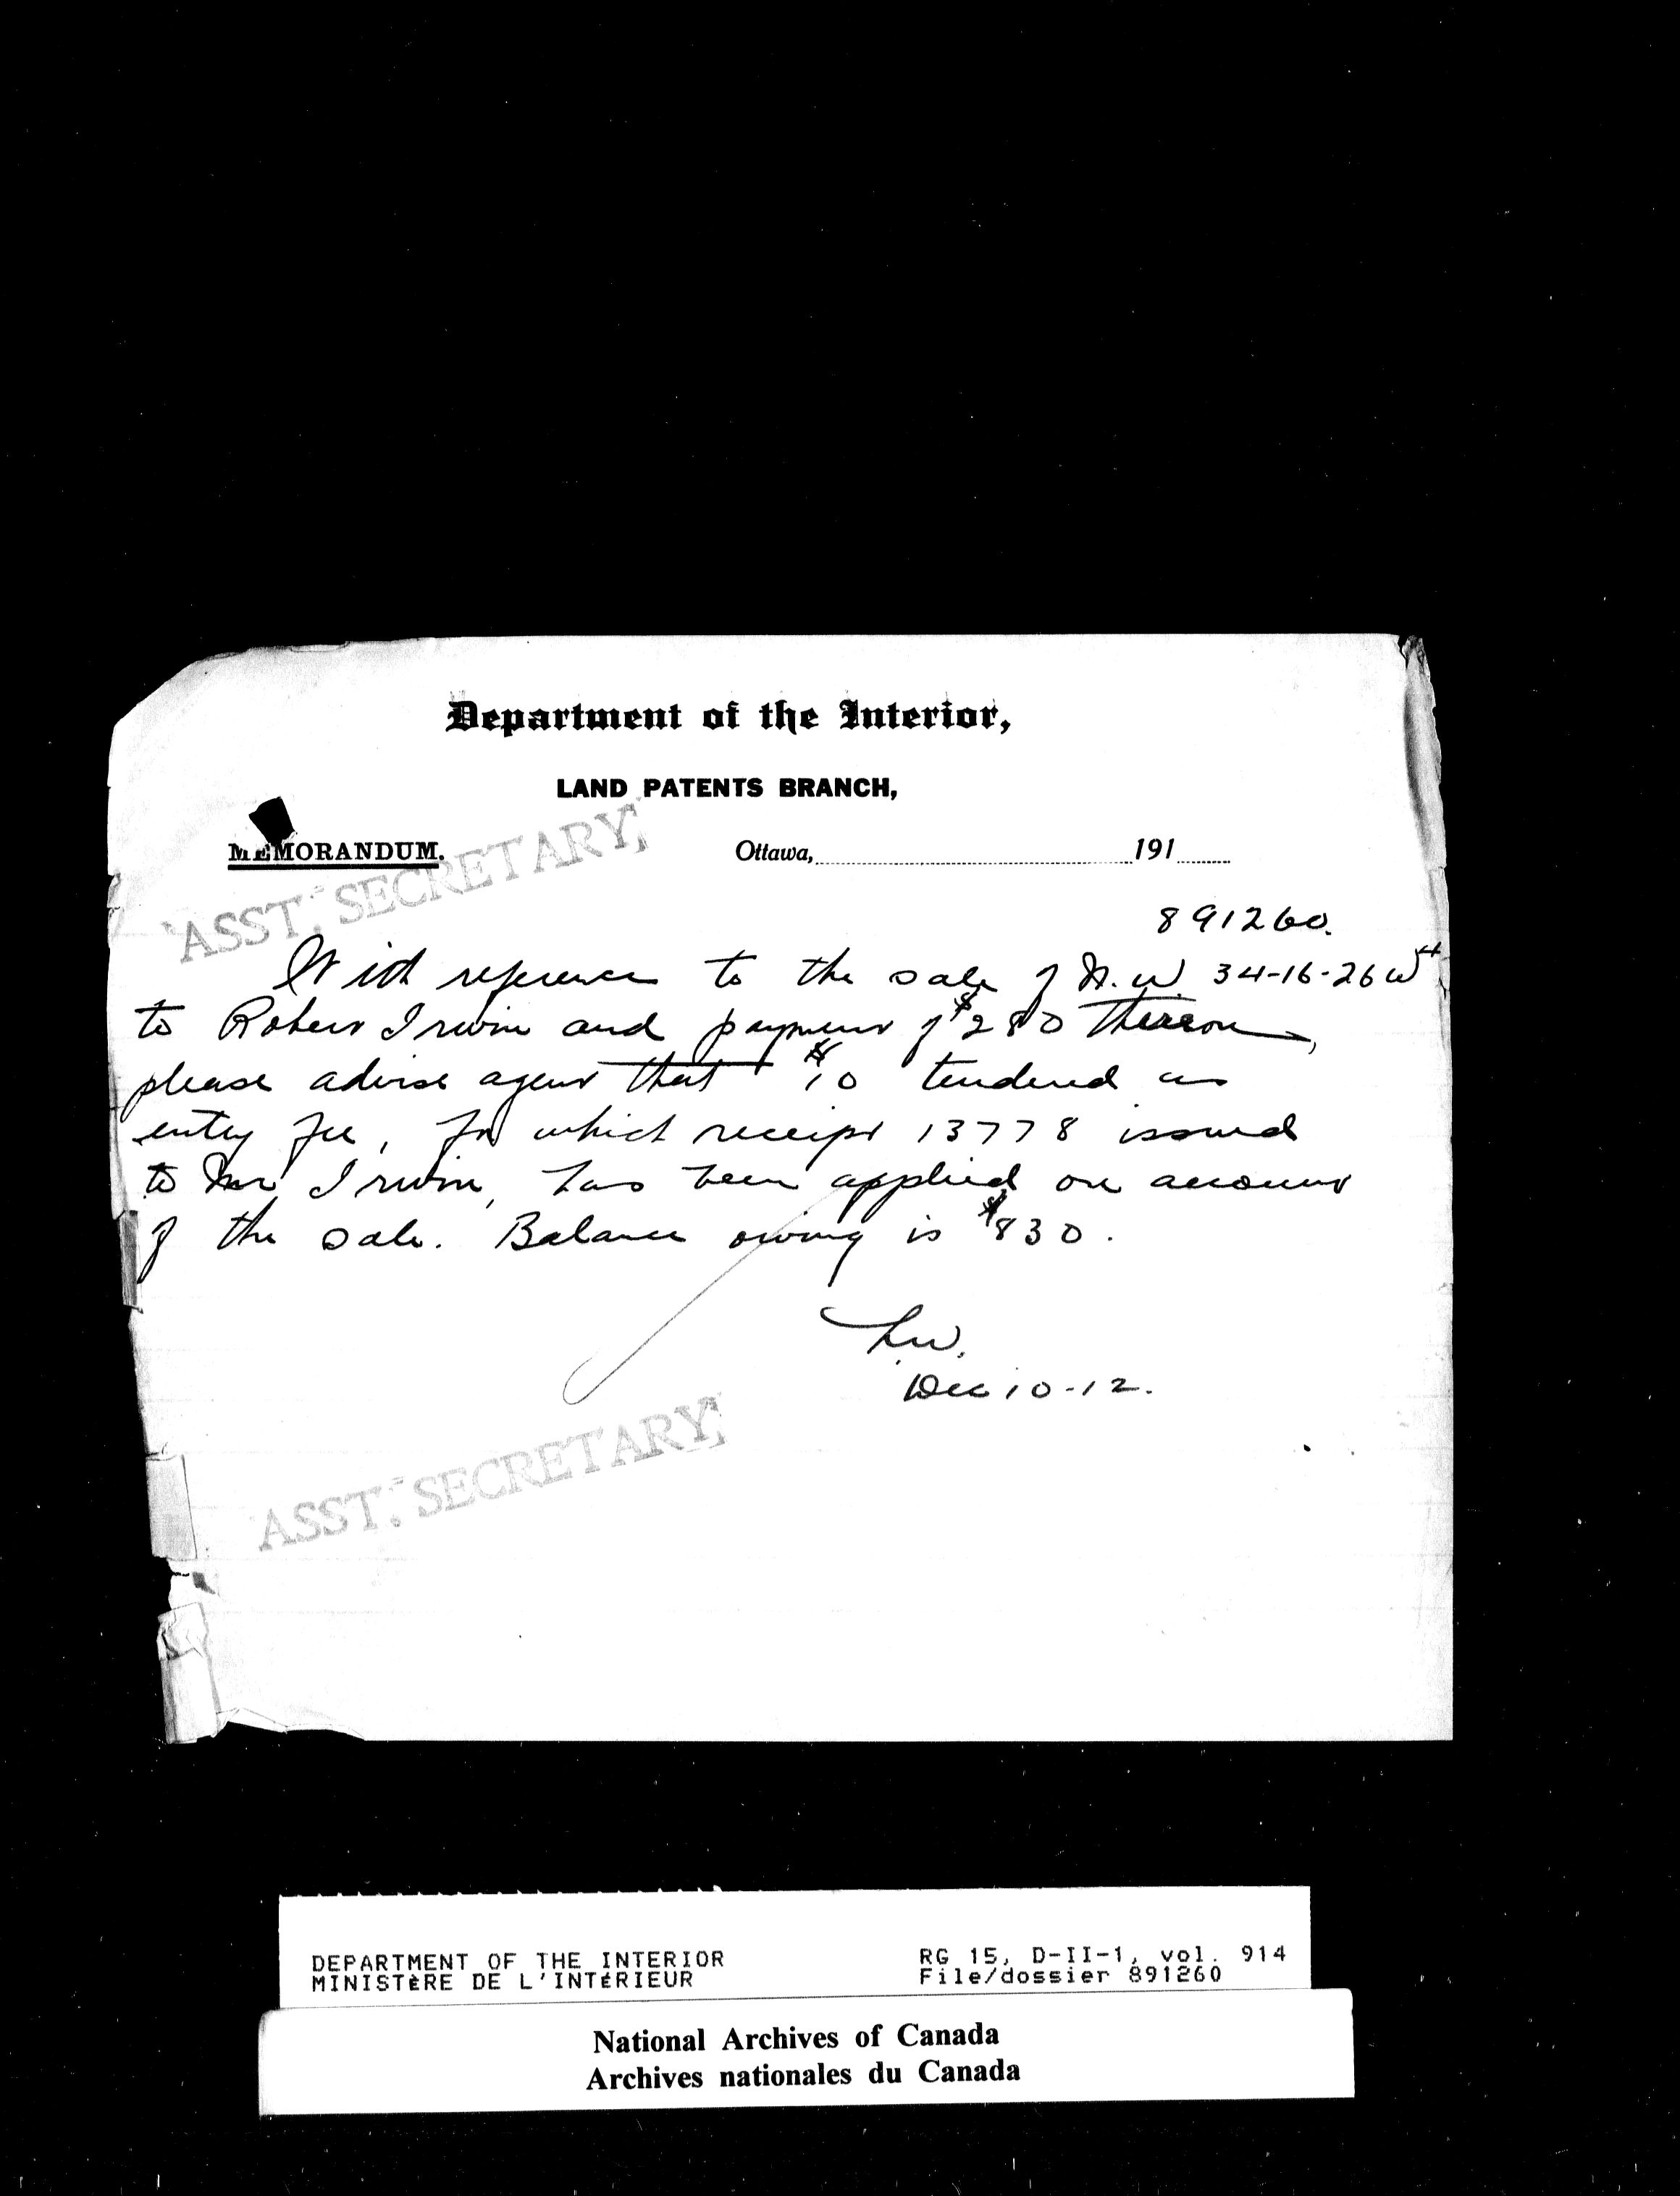 Department of the Interior,
LAND PATENTS BRANCH,
MEMORANDUM.
Ottawa, 191
ASST. SECRETARY,
891260.
With reference to the sale of N.W. 34-16-26 W4
to Robert Irwin and payment of $280 thereon,
please advise agent that $10 tendered as
entry fee, for which receipt 13778 issued
to Mr Irwin, has been applied on account
of the sale. Balance owing is $830.
Dec 10-12.
ASST. SECRETARY,
DEPARTMENT OF THE INTERIOR RG 15, D-II-1, vol. 914
MINISTÈRE DE L'INTÉRIEUR File/dossier 891260
National Archives of Canada
Archives nationales du Canada